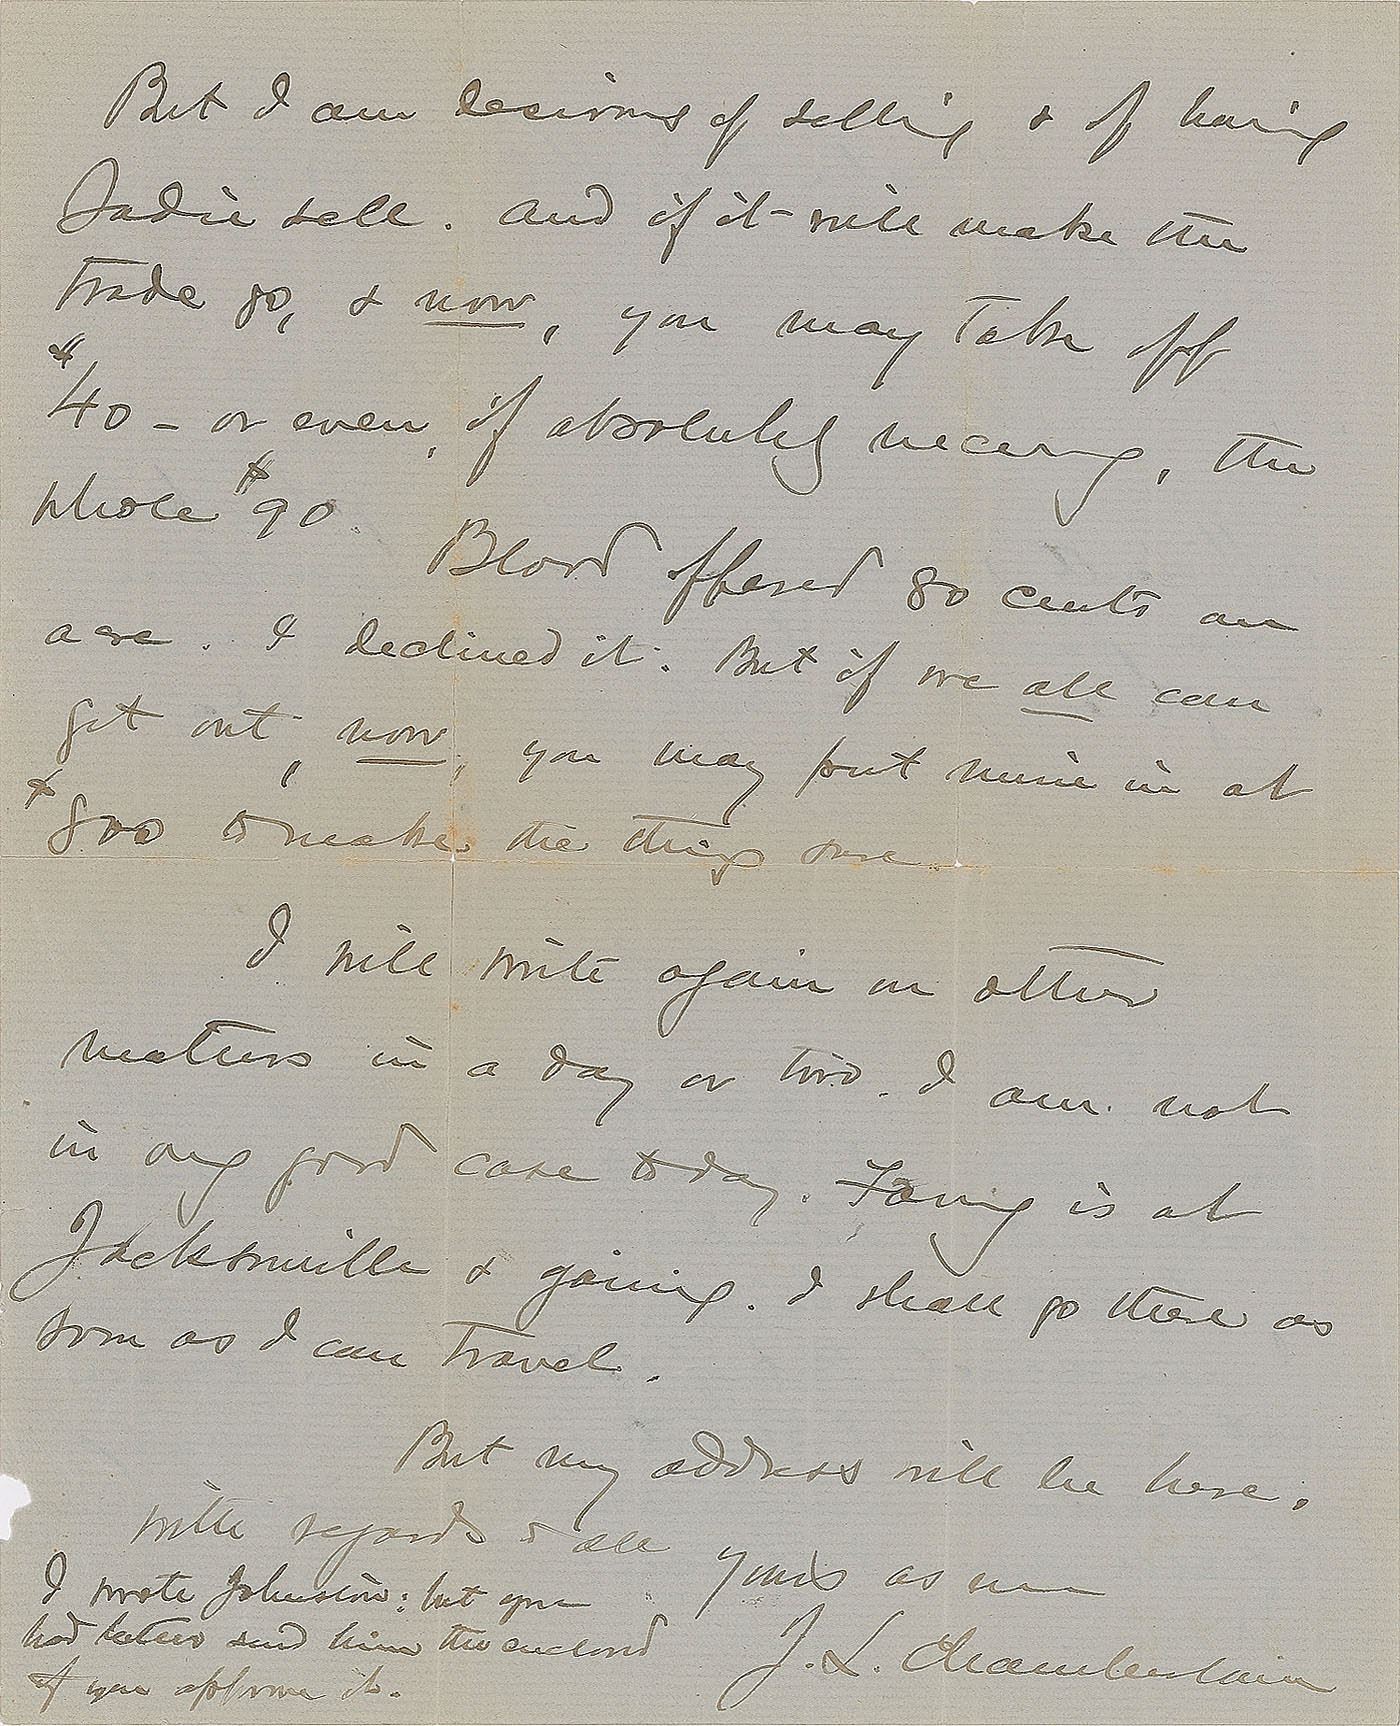 But I am desirous of selling & of having
Sadie sell. And if it will make the
trade go, & now, you may take off
$40 – or even, if absolutely necessary, the
whole $90.
Blood offered 80 cents an
acre. I declined it. But if we all can
get out, now, you may put mine in at
$800 to make the thing sure.
I will write again on other
matters in a day or two. I am not
in any good case to day. Fanny is at
Jacksonville & gaining. I shall go there as
soon as I can travel.
But my address will be here.
With regards to all
yours as ever
J. L. Chamberlain
I wrote Johnston: but you
had better send him the enclosed
if you approve it.